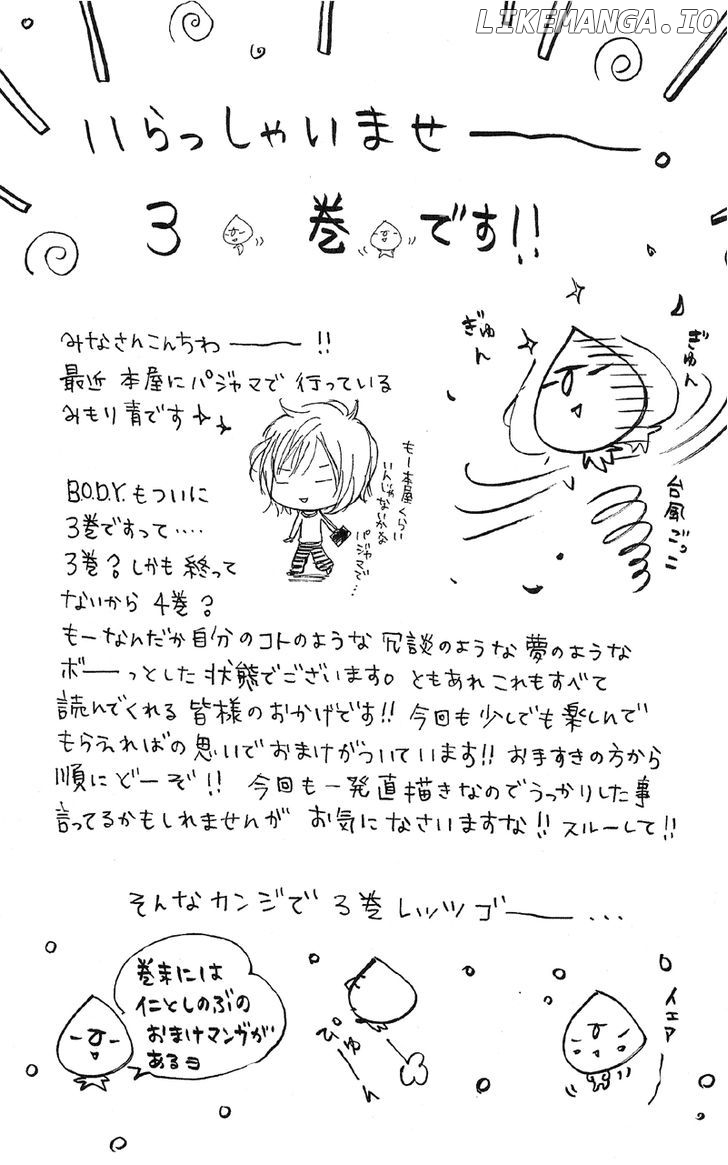 LIKEMANGA.IO
いらっしゃいませ―――。
3 巻 です!!
ぎゅん
ぎゅん
みなさんこんちわ――――!!
最近 本屋にパジャマで 行っている
みもり青です
もー本屋くらい
いんじゃないかな
パジャマで…
台風ごっこ
B.O.D.Y.もついに
3巻ですって‥‥
3巻?しかも終って
ないから 4巻?
もーなんだか自分のコトのような 冗談のような 夢のような
ボ――っとした 状態でございます。ともあれこれもすべて
読んでくれる 皆様のおかげです!! 今回も少しでも楽しんで
もらえればの思いでおまけがついています!! お手すきの方から
順にどーぞ!! 今回も一発直描きなのでうっかりした事
言ってるかもしれませんが お気になさいますな!! スルーして!!
そんなカンジで 3巻レッツゴ――――…
巻末には
仁としのぶの
おまけマンガが
あるヨ
ぴゅーーん
イエアーー